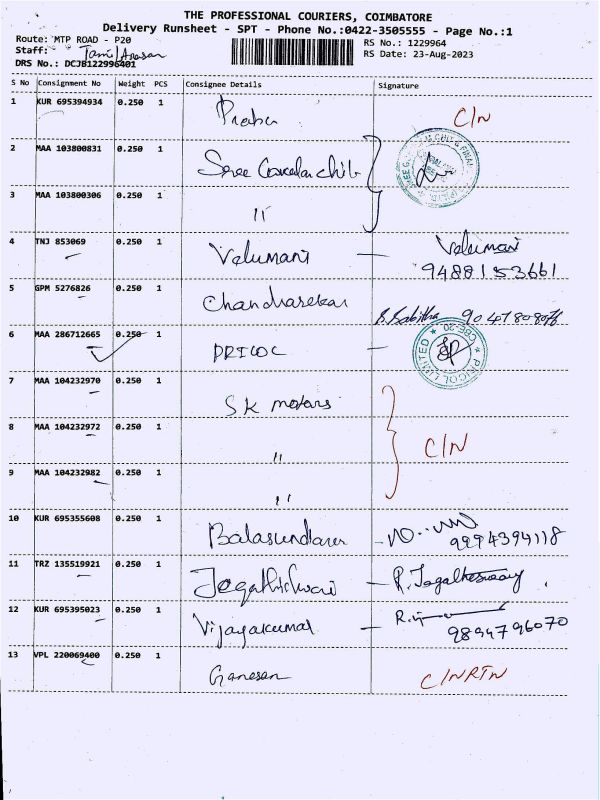 THE PROFESSIONAL COURIERS, COIMBATORE
Delivery Runsheet - SPT - Phone No.:0422-3505555 - Page No.:1
Route: MTP ROAD - P20
RS No.: 1229964
Staff: Tamil Arasan
RS Date: 23-Aug-2023
DRS No.: DCJB122996401
S No Consignment No Weight PCS Consignee Details Signature
1 KUR 695394934 0.250 1 Prabu C/N
2 MAA 103800831 0.250 1 Sree
3 MAA 103800306 0.250 1 "
4 TNJ 853069 0.250 1 Velumani - Velumani
9488153661
5 GPM 5276826 0.250 1 Chandrasekar B. Sabitha
6 MAA 286712665 0.250 1 PRICOL - PRICOL LIMITED CBE-20
7 MAA 104232970 0.250 1 SK motors
8 MAA 104232972 0.250 1 " C/N
9 MAA 104232982 0.250 1 "
10 KUR 695355608 0.250 1 Balasundaram
9994394118
11 TRZ 135519921 0.250 1 Jegathiswari -
12 KUR 695395023 0.250 1 Vijayakumar -
9894796070
13 VPL 220069400 0.250 1 Ganesan C/NRTN